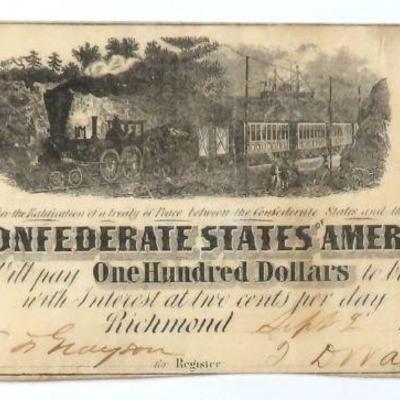 the Ratification of a treaty of Peace between the Confederate States and the
CONFEDERATE STATES OF AMER
Will pay One Hundred Dollars to b
with Interest at two cents per day
Richmond Sept 2
Grayson
for Register